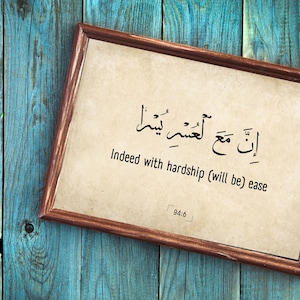 إِنَّ مَعَ لْعُسْرِ يُسْرًا
Indeed with hardship (will be) ease
94:6